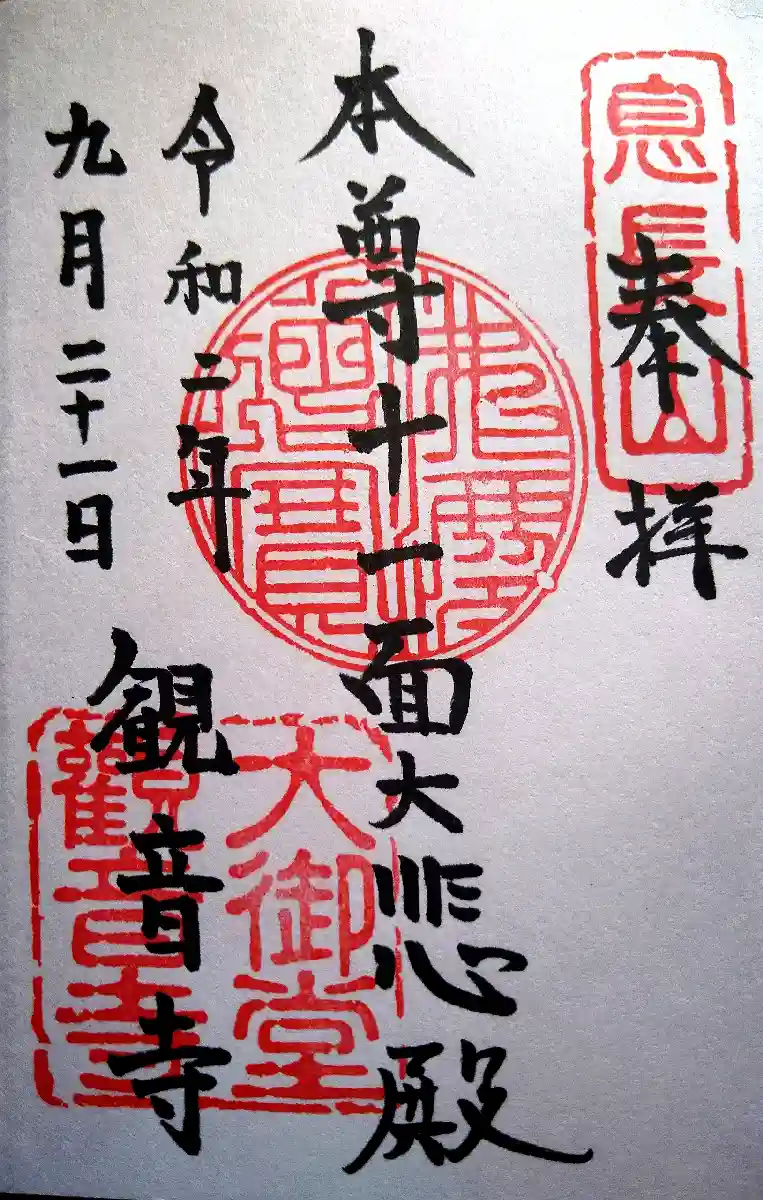 奉拝
息長山
本尊十一面大悲殿
令和二年
九月二十一日
観音寺
大御堂
觀音寺